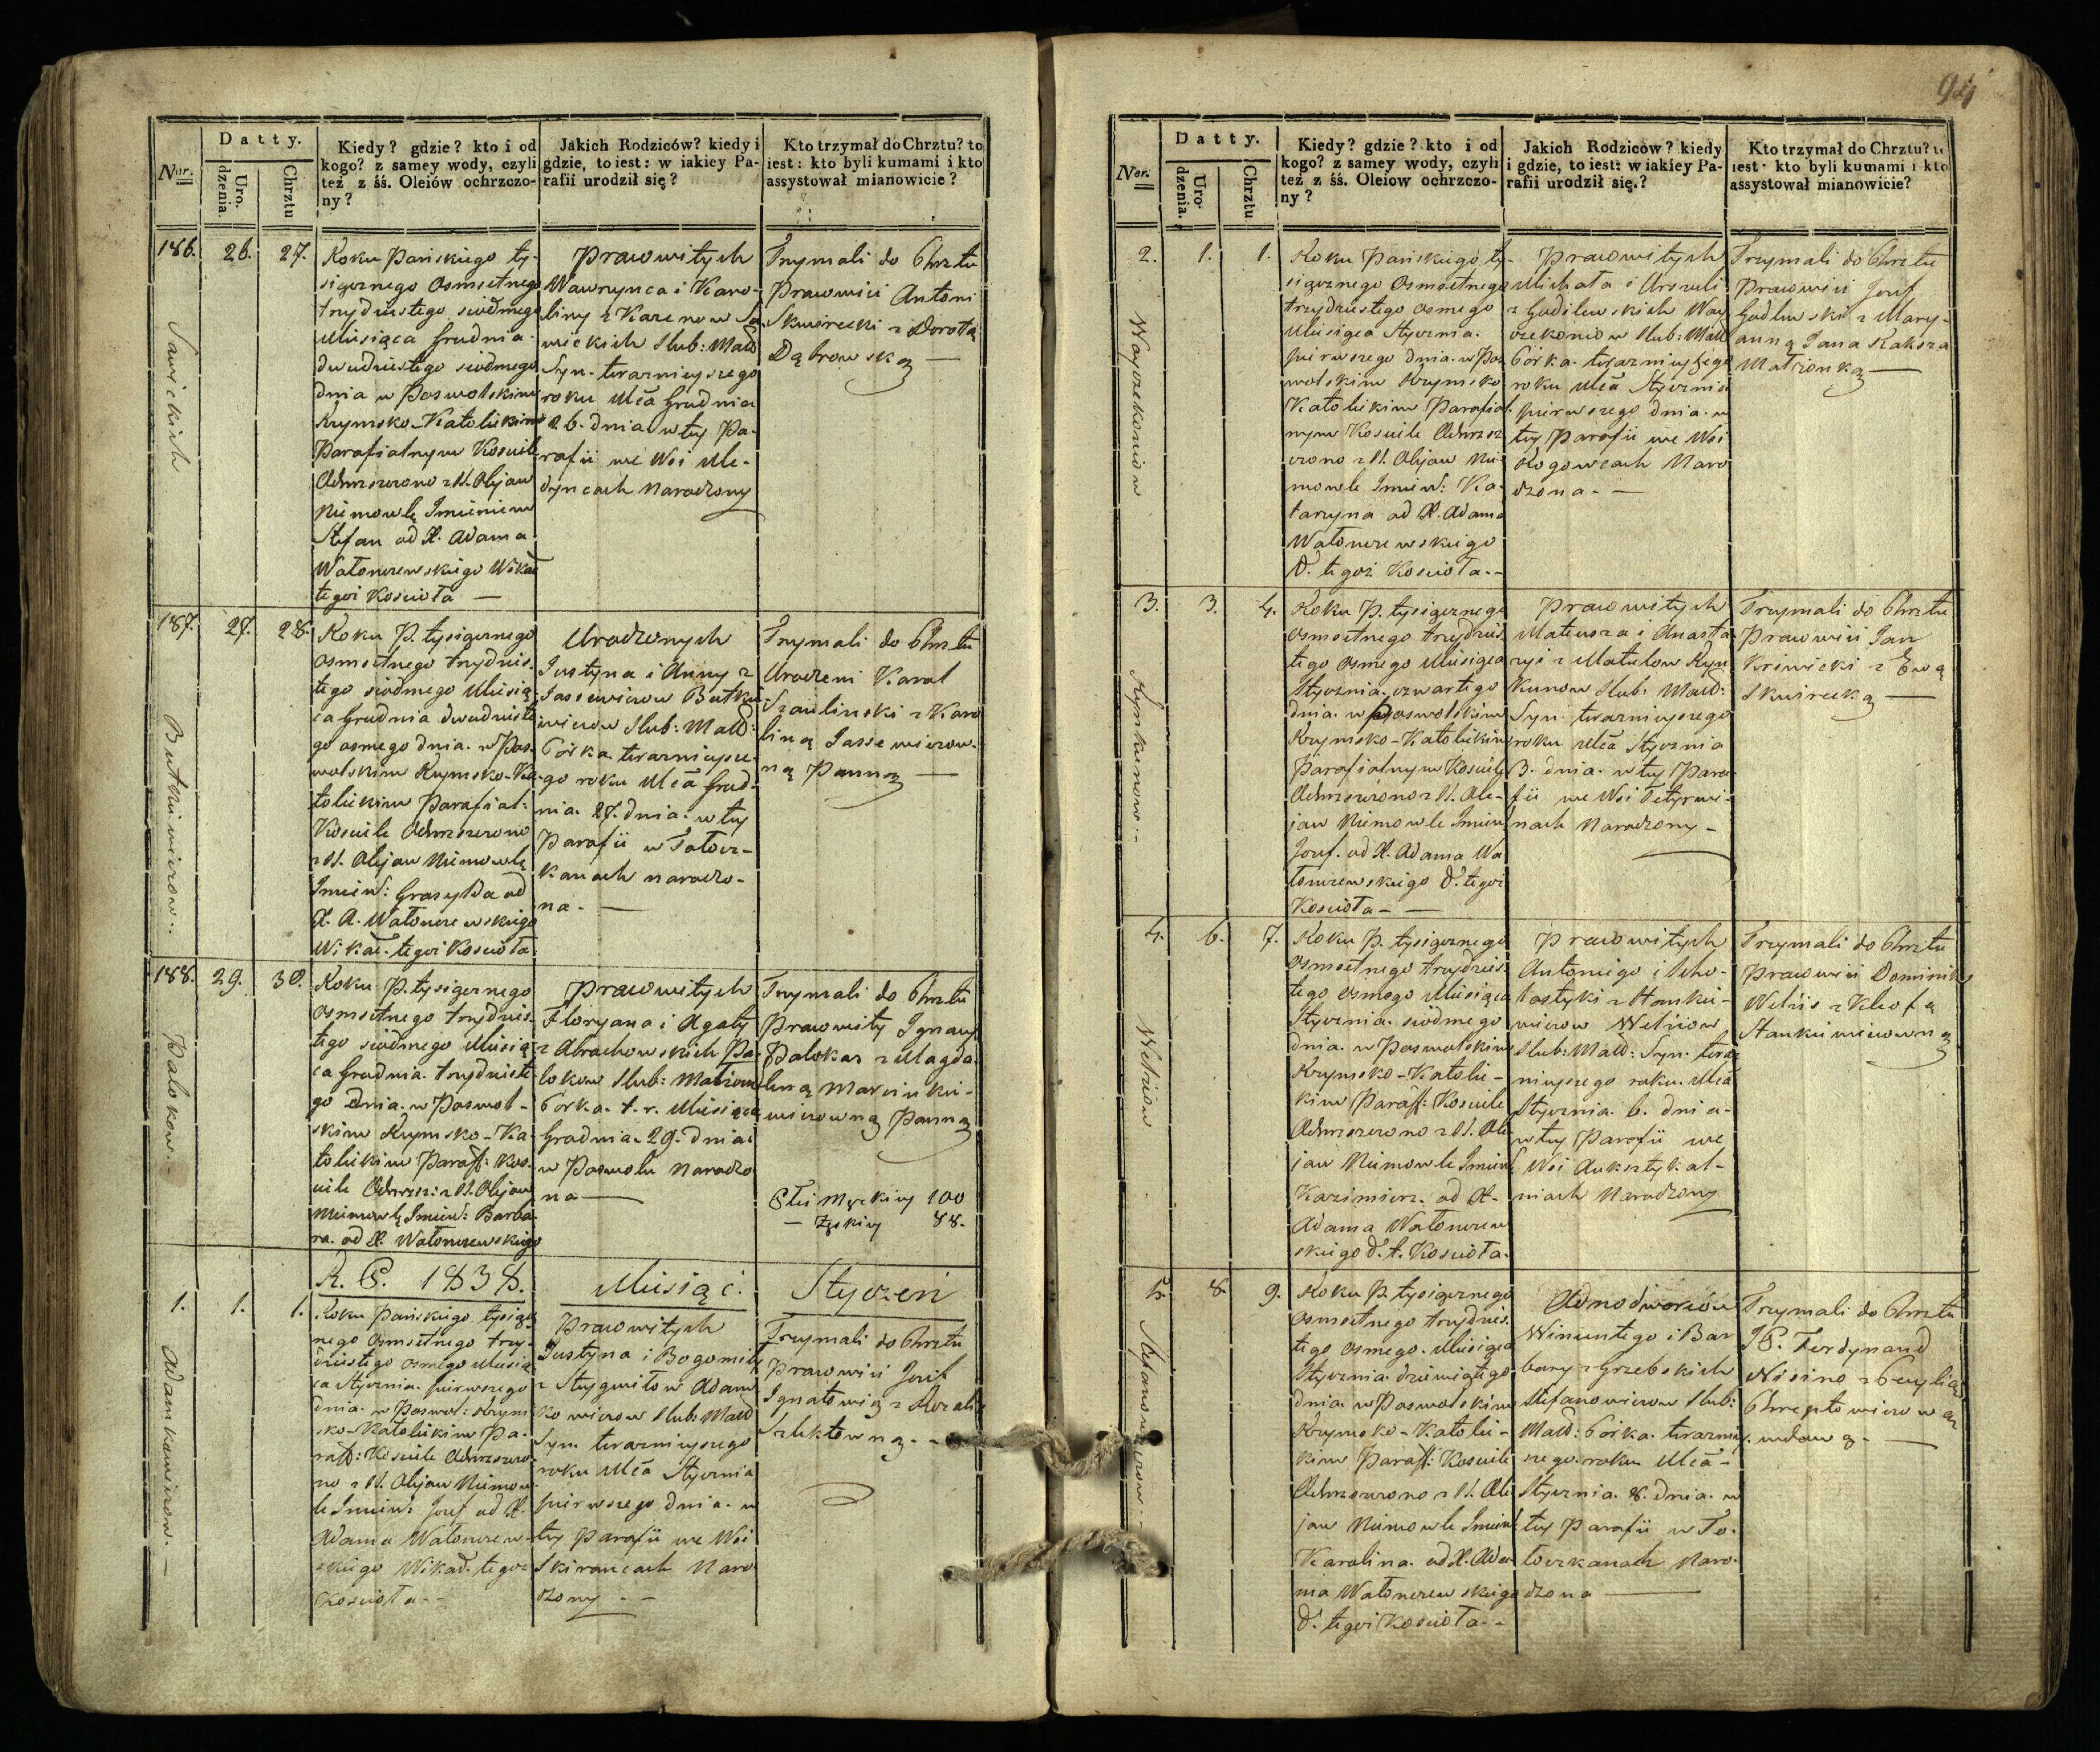 94
Datty.
Kiedy? gdzie? kto i od
kogo? z samey wody, czyli
też z śś. Oleiów ochrzczo-
ny?
Jakich Rodziców? kiedy i
gdzie, to iest: w iakiey Pa-
rafii urodził się?
Kto trzymał do Chrztu? to
iest: kto byli kumami i kto
assystował mianowicie?
Ner.
Uro-
dzenia.
Chrztu
186. 26. 27.
Sawickich
Roku Pańskiego ty-
siącznego Osmsetnego
trzydziestego siódmego
Miesiąca Grudnia
dwudziestego siódmego
dnia w Poswolskim
Rzymsko-Katolickim
Parafialnym Kosciele
Ochrzczono z SS. Olejow
Niemowlę Imieniem
Stefan od X. Adama
Watonczewskiego Wikar
tegoż Kościoła —
Prawowitych
Wawrzynca i Karo-
liny z Kazenow Sa-
wickich Slub: Małż
Syn terazniejszego
roku Mca Grudnia
26. dnia w tej Pa-
rafii we Wsi Me-
dyncach Narodzony
Trzymali do Chrztu
Prawowici Antoni
Skwirecki z Dorotą
Dąbrowską —
187. 27. 28.
Butkiewiczow
Roku P. tysiącznego
Osmsetnego trzydzies-
tego siódmego Miesią-
ca Grudnia dwudzieste
go osmego dnia w Pos-
wolskim Rzymsko-Ka-
tolickim Parafial:
Kosciele Ochrzczono
z SS. Olejow Niemowlę
Imien: Grasylda od
X. A. Watonczewskiego
Wikar. tegoż Kościoła
Urodzonych
Justyna i Anny z
Jassewiczow Butkie-
wiczow Slub: Małż:
Córka terazniejsze-
go roku Mca Grud-
nia 27. dnia w tej
Parafii w Tołocz-
kanach narodzo-
na. —
Trzymali do Chrztu
Urodzeni Karol
Szaulinski z Karo
liną Jassewiczow-
ną Panną —
188. 29. 30.
Palokow
Roku P. tysiącznego
Osmsetnego trzydzies-
tego siódmego Miesią-
ca Grudnia trzydzieste
go dnia w Poswol-
skim Rzymsko-Ka-
tolickim Paraff: Kos-
ciele Ochrzcz: z SS. Olejow
Niemowlę Imien: Barba-
ra. od X. Watonczewskiego
Prawowitych
Floryana i Agaty
z Abrachowskich Pa-
lokow Slub: Małżon
Corka t. r. Miesiąca
Grudnia 29. dnia
w Poswolu Narodzo
na —
Trzymali do Chrztu
Prawowity Ignacy
Palokas z Magda-
leną Marcinkie-
wiczowną Panną
Płci Męzkiey 100
— Zęskiey 88.
R. P. 1838. Miesiąc Styczeń
1. 1. 1.
Adamkowiczow. —
Roku Pańskiego tysiącz
nego Osmsetnego trzy-
dziestego osmego Miesią
ca Stycznia pierwszego
dnia w Poswol: Rzym
sko-Katolickim Pa-
raff: Kościele Ochrzczo-
no z SS. Olejow Niemow
le Imien: Jozef od X.
Adama Watonczew-
skiego Wikar. tegoż
Kościoła --
Prawowitych
Justyna i Bogomiły
z Stygwiłow Adam
kowiczow Slub: Małż
Syn terazniejszego
roku Mca Stycznia
pierwszego dnia w
tej Parafii we Wsi
Skirancach Naro
dzony --
Trzymali do Chrztu
Prawowici Jozef
Ignatowicz z Rozalią
Szlektowną. —
Datty.
Kiedy? gdzie? kto i od
kogo? z samey wody, czyli
też z śś. Oleiow ochrzczo-
ny?
Jakich Rodziców? kiedy
i gdzie, to iest: w iakiey Pa-
rafii urodził się.?
Kto trzymał do Chrztu? to
iest: kto byli kumami i kto
assystował mianowicie?
Ner.
Uro-
dzenia.
Chrztu
2. 1. 1.
Woyczekoniow
Roku Pańskiego ty-
siącznego Osmsetnego
trzydziestego osmego
Miesiąca Stycznia
pierwszego dnia w Pos
wolskim Rzymsko
Katolickim Parafial
nym Kosciele Ochrzcz
czono z SS. Olejow Nie
mowle Imien: Ka-
taryna od X. Adama
Watonczewskiego
W. tegoż Kościoła. -
Prawowitych
Michała i Urszuli
z Godlewskich Woy
czekoniow Slub: Małż
Córka terazniejszego
roku Mca Stycznia
pierwszego dnia w
tej Parafii we Wsi
Rogowcach Naro
dzona. —
Trzymali do Chrztu
Prawowici Jozef
Godlewski z Mary-
anną Jana Kaksza
Małzonką —
3. 3. 4.
Rynkunow. -
Roku P. tysiącznego
Osmsetnego trzydzies
tego osmego Miesiąca
Stycznia czwartego
dnia w Poswolskim
Rzymsko-Katolickim
Parafialnym Kosciele
Ochrzczono z SS. Ole-
jow Niemowle Imien
Jozef. od X. Adama Wa
tonczewskiego W. tegoż
Kościoła — —
Prawowitych
Mateusza i Anasta
zyi z Matulow Ryn
kunow Slub: Małż:
Syn terazniejszego
roku Mca Stycznia
3. dnia w tej Para
fii we Wsi Tetyrwi-
nach Narodzony —
Trzymali do Chrztu
Prawowici Jan
Kriwicki z Ewą
Skwirecką —
4. 6. 7.
Wetriow
Roku P. tysiącznego
Osmsetnego trzydzies-
tego osmego Miesiąca
Stycznia siódmego
dnia w Poswolskim
Rzymsko-Katolic-
kim Paraff: Kosciele
Ochrzczono z SS. Ole
jow Niemowle Imien
Kazimierz. od X.
Adama Watonczew
skiego W. t. Kościoła.
Prawowitych
Antoniego i Scho-
lastyki z Stankie-
wiczow Wetriow
Slub: Małż: Syn teraz
niejszego roku Mca
Stycznia 6. dnia
w tej Parafii we
Wsi Auksztykal-
niach Narodzony
Trzymali do Chrztu
Prawowici Dominik
Wetris z Kleofą
Stankiewiczowną
5. 8. 9.
Stefanowiczow. -
Roku P. tysiącznego
Osmsetnego trzydzies
tego osmego Miesiąca
Stycznia dziewiątego
dnia w Poswolskim
Rzymsko-Katolic-
kim Paraff: Kosciele
Ochrzczono z SS. Ole
jow Niemowle Imien:
Karolina. od X. Ada
ma Watonczewskiego
W. tegoż Kościoła. -
Odnodworców
Wincentego i Bar
bary z Grzebskich
Stefanowiczow Slub:
Małż: Córka terazniej
szego roku Mca
Stycznia 8. dnia w
tej Parafii w To-
łoczkanach Naro-
dzona —
Trzymali do Chrztu
JP. Ferdynand
Nicino z Cecylią
Chreptowiczową
wdową. —